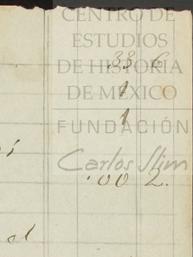 CENTRO DE
ESTUDIOS
33 6
DE HISTORIA
1
DE MÉXICO
1
FUNDACIÓN
Carlos Slim
00 2.